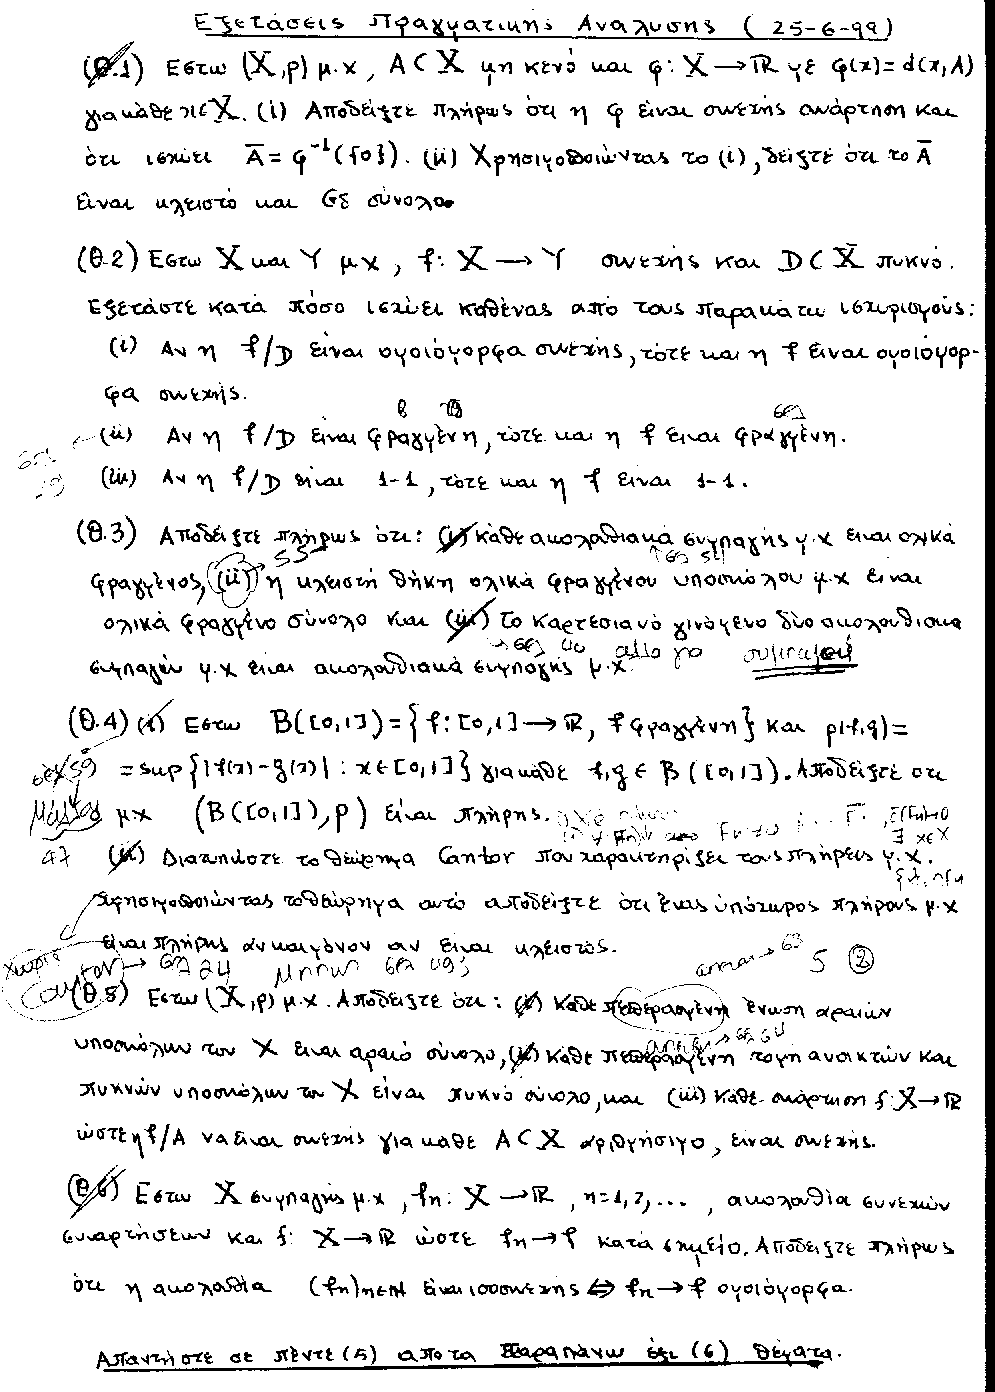 Εξετάσεις Πραγματικής Ανάλυσης (25-6-99)
(Θ.1) Εστω (X,ρ) μ.χ, A⊂X μη κενό και φ: X→ℝ με φ(x)=d(x,A)
για κάθε x∈X. (i) Αποδείξτε πλήρως ότι η φ είναι συνεχής συνάρτηση και
ότι ισχύει Ā = φ⁻¹({0}). (ii) Χρησιμοποιώντας το (i), δείξτε ότι το Ā
είναι κλειστό και Gδ σύνολο.
(Θ.2) Εστω X και Y μ.χ, f: X→Y συνεχής και D⊂X πυκνό.
Εξετάστε κατά πόσο ισχύει καθένας από τους παρακάτω ισχυρισμούς:
(i) Αν η f/D είναι ομοιόμορφα συνεχής, τότε και η f είναι ομοιόμορ-
φα συνεχής.
(ii) Αν η f/D είναι φραγμένη, τότε και η f είναι φραγμένη.
(iii) Αν η f/D είναι 1-1, τότε και η f είναι 1-1.
(Θ.3) Αποδείξτε πλήρως ότι: (i) κάθε ακολουθιακά συμπαγής μ.χ είναι ολικά
φραγμένος, (ii) η κλειστή θήκη ολικά φραγμένου υποσυνόλου μ.χ είναι
ολικά φραγμένο σύνολο και (iii) το καρτεσιανό γινόμενο δύο ακολουθιακα
συμπαγών μ.χ είναι ακολουθιακά συμπαγής μ.χ
συμπαγή
(Θ.4) (i) Εστω B([0,1])={f:[0,1]→ℝ, f φραγμένη} και ρ(f,g)=
=sup{|f(x)-g(x)| : x∈[0,1]} για κάθε f,g∈B([0,1]). Αποδείξτε οτι
μ.χ (B([0,1]),ρ) είναι πλήρης.
47
(ii) Διατυπώστε το θεώρημα Cantor που χαρακτηρίζει τους πλήρεις μ.χ.
Χρησιμοποιώντας το θεώρημα αυτό αποδείξτε ότι ένας υπόχωρος πλήρους μ.χ
είναι πλήρης αν και μόνον αν είναι κλειστός.
5 (2)
(Θ.5) Εστω (X,ρ) μ.χ. Αποδείξτε ότι: (i) Κάθε πεπερασμένη ένωση αραιών
υποσυνόλων του X είναι αραιό σύνολο, (ii) κάθε πεπερασμένη τομή ανοικτών και
πυκνών υποσυνόλων του X είναι πυκνό σύνολο, και (iii) κάθε συνάρτηση f:X→ℝ
ώστε η f/A να είναι συνεχής για κάθε A⊂X αριθμήσιμο, είναι συνεχής.
(Θ.6) Εστω X συμπαγής μ.χ, fn: X→ℝ, n=1,2,..., ακολουθία συνεχών
συναρτήσεων και f: X→ℝ ώστε fn→f κατά σημείο. Αποδείξτε πλήρως
ότι η ακολουθία (fn)n∈ℕ είναι ισοσυνεχής ⇔ fn→f ομοιόμορφα.
Απαντήστε σε πέντε (5) από τα παραπάνω έξι (6) θέματα.